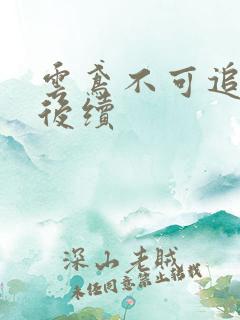 雲鸢不可追
後續
深山老賊
未經同意禁止轉載